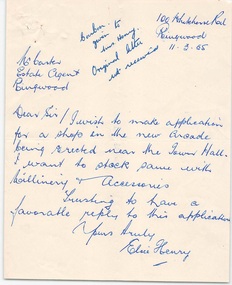 Carbon
given to
Mrs Henry.
Original letter
not received
100 Whitehorse Rd
Ringwood
11-3-55
Mr Carter
Estate Agent
Ringwood
Dear Sir / I wish to make application
for a shop in the new Arcade
being erected near the Town Hall.
I want to stock same with
Millinery & Accessories
Trusting to have a
favorable reply to this application
Yours truly
Elsie Henry